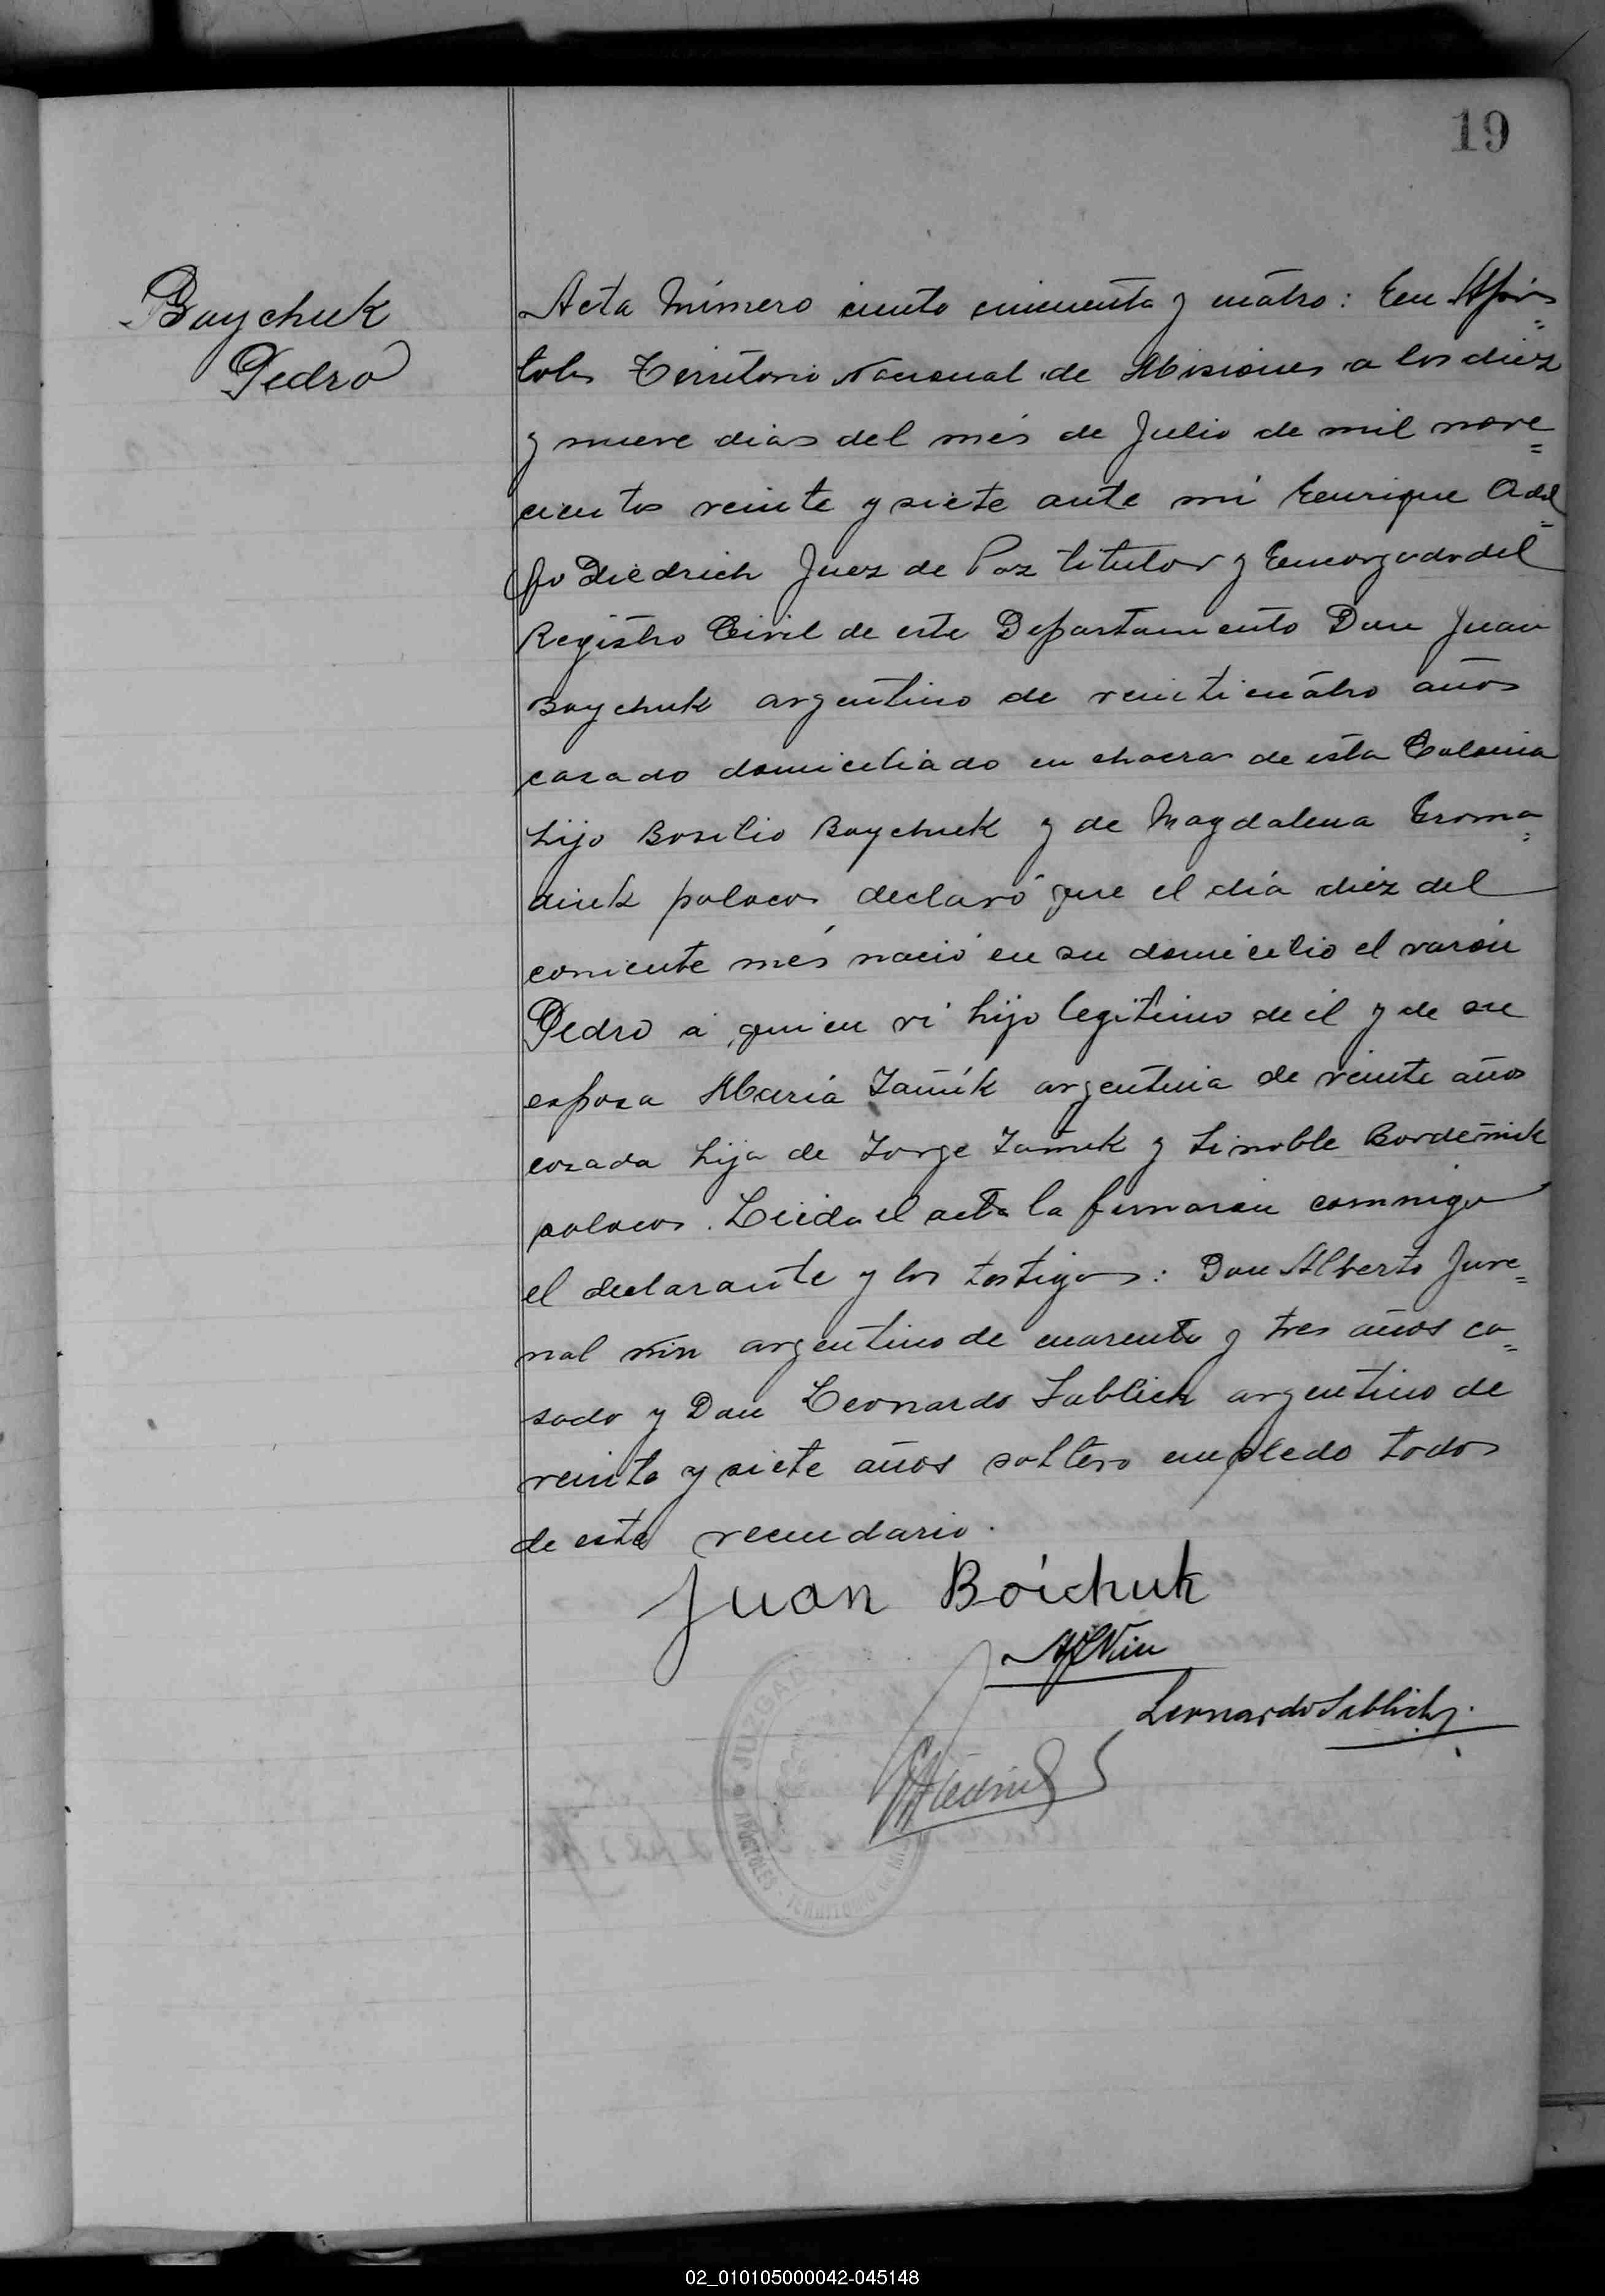 19
Baychuk
Pedro
Acta Número ciento cincuenta y cuatro: En Após=
toles Territorio Nacional de Misiones a los diez
y nueve dias del més de Julio de mil nove=
cientos veinte y siete ante mi Enrique Adol=
fo Diedrich Juez de Paz titular y Encargado del
Registro Civil de este Departamento Don Juan
Baychuk argentino de veinticuatro años
casado domiciliado en chacra de esta Colonia
hijo Basilio Baychuk y de Magdalena Eroma=
diuk polacos declaró que el día diez del
corriente més nació en su domicilio el varón
Pedro a quien vi hijo legitimo de él y de su
esposa María argentina de veinte años
casada hija de Jorge y Bordeñuk
polacos. Leida el acta la firmaron conmigo
el declarante y los testigos: Don Alberto Juve=
nal Nin argentino de cuarenta y tres años ca=
sado y Don Leonardo Sablich argentino de
veinte y siete años soltero empledo todos
de este vecindario.
Juan Boichuk
AJNin
Leonardo Sablich
JUZGAD
APOSTOLES - TERRITORIO DE MI
02_010105000042-045148